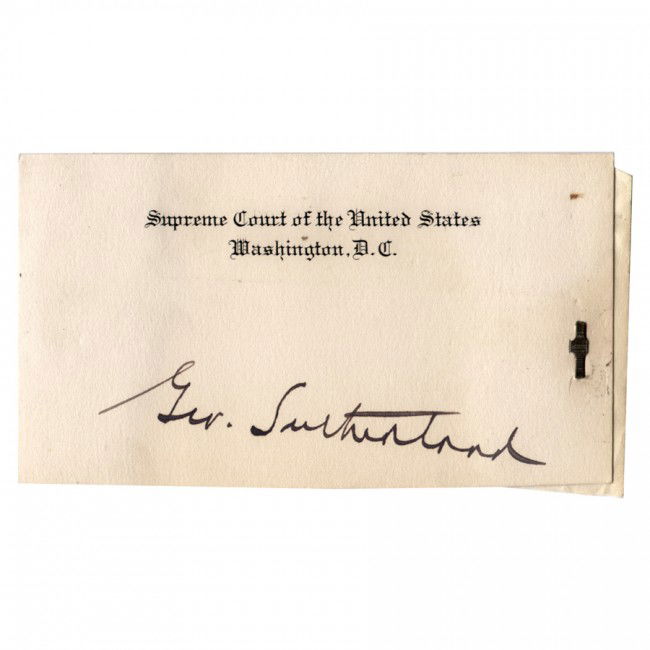 Supreme Court of the United States
Washington, D. C.
Geo. Sutherland